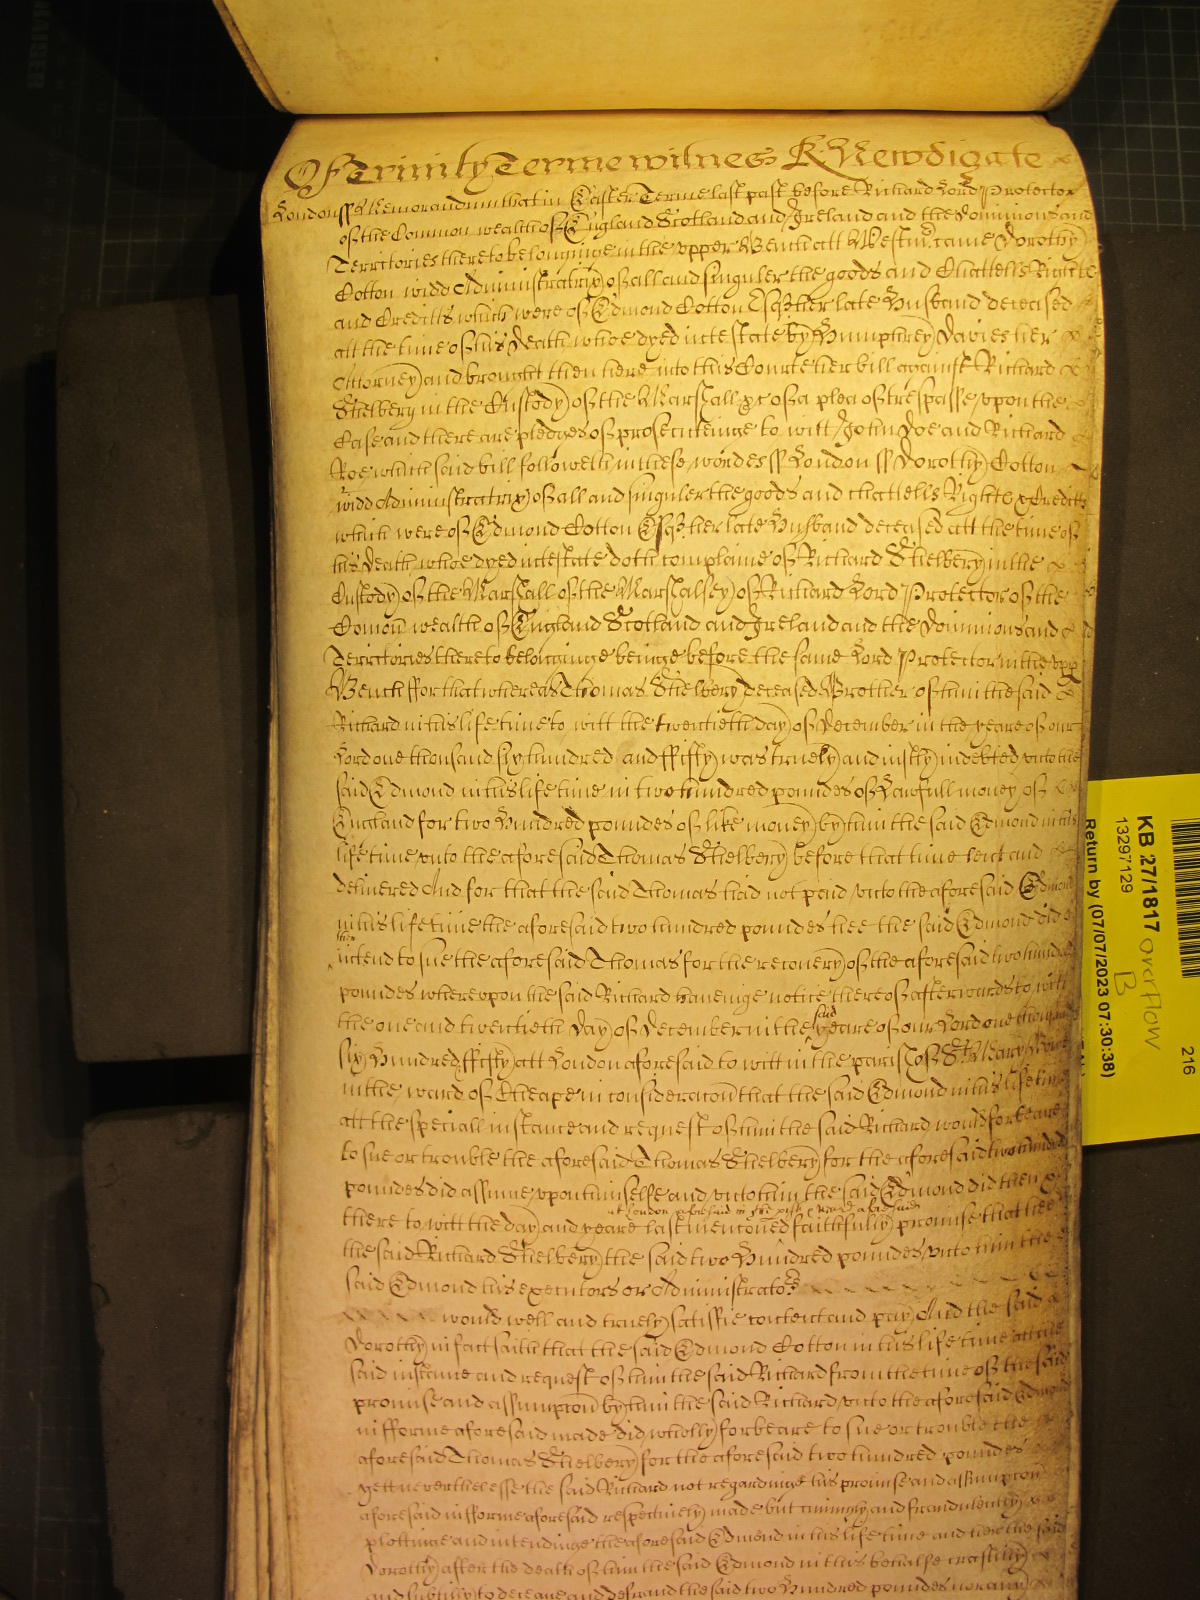 Of Trinity Terme witnes R Newdigate
London ss Memorandum that in Easter Terme last past before Richard Lord Protector
of the Common wealth of England Scotland and Ireland and the Dominions and
Territories thereto belonginge in the upper Bench att Westmr came Dorothy
Cotton widd Administratrix of all and singuler the goods and Chattells Rights
and Creditts which were of Edmond Cotton Esqr her late Husband deceased
att the time of his Death whoe dyed intestate by Humphrey Davies her
Attorney and brought then here into this Courte her bill against Richard
Shelbery in the Custody of the Marshall &c of a plea of trespasse upon the
Case and there are pledges of prosecuteinge to witt John Doe and Richard
Roe which said bill followeth in these wordes ss London ss Dorothy Cotton
widd Administratrix of all and singuler the goods and chattells Rights & Creditts
which were of Edmond Cotton Esqr her late Husband deceased att the time of
his Death whoe dyed intestate doth complaine of Richard Shelbery in the
Custody of the Marshall of the Marshalsey of Richard Lord Protector of the
Comon wealth of England Scotland and Ireland and the Dominions and
Territories thereto belonginge beinge before the same Lord Protector in the upp
Bench ffor that whereas Thomas Shelbery deceased Brother of him the said
Richard in his life time to witt the twentieth day of December in the yeare of our
Lord one thousand six hundred and ffifty was truely and iustly indebted unto the
said Edmond in his life time in two hundred poundes of Lawfull money of
England for two Hundred poundes of like money by him the said Edmond in his
life time unto the aforesaid Thomas Shelbery before that time lent and
delivered And for that the said Thomas had not paid unto the aforesaid Edmond
in his life time the aforesaid two hundred poundes hee the said Edmond did
then
intend to sue the aforesaid Thomas for the recovery of the aforesaid two hundred
poundes whereupon the said Richard haveinge notice thereof afterwards to witt
said
the one and twentieth day of December in the yeare of our Lord one thousand
six Hundred ffifty att London aforesaid to witt in the parish of St Mary Bowe
in the ward of Cheape in consideracon that the said Edmond in his life time
att the speciall instance and request of him the said Richard would forbeare
to sue or trouble the aforesaid Thomas Shelbery for the aforesaid two hundred
poundes did assume upon himselfe and unto him the said Edmond did then &
at London aforesaid in the pish & ward aforesaid
there to witt the day and yeare last menconed faithfully promise that hee
the said Richard Shelbery the said two Hundred poundes unto him the
said Edmond his executors or Administrators
would well and truely satisfie content and pay And the said
Dorothy in fact saith that the said Edmond Cotton in his life time att the
said instance and request of him the said Richard from the time of the said
promise and assumpcon by him the said Richard unto the aforesaid Edmond
in fforme aforesaid made did wholly forbeare to sue or trouble the
aforesaid Thomas Shelbery for the aforesaid two hundred poundes
yett neverthelesse the said Richard not regardinge his promise and assumpcon
aforesaid in fforme aforesaid respectively made but cuningly and fraudulently
plottinge and intendinge the aforesaid Edmond in his life time and her the said
Dorothy after the death of him the said Edmond in this behalfe craftily
and subtilly to deceave and defraud the said two Hundred poundes nor any
KB 27/1817 overflow
13297129 B
Return by (07/07/2023 07:30:38)
216